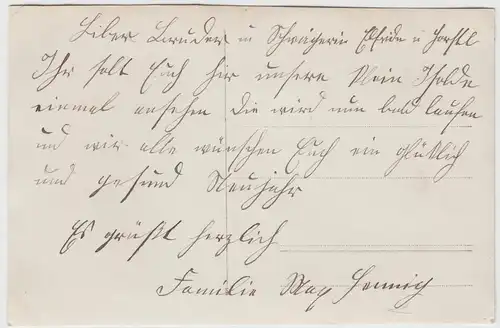 Liber Bruder u Schwagerin Elfride u Horstl
Ihr solt Euch hir unsere klein Isolde
einmal ansehen die wird nun bald laufen
und wir alle wünschen Euch ein glüklich
und gesund Neujahr
Es grüßt herzlich
Familie Max Hennig